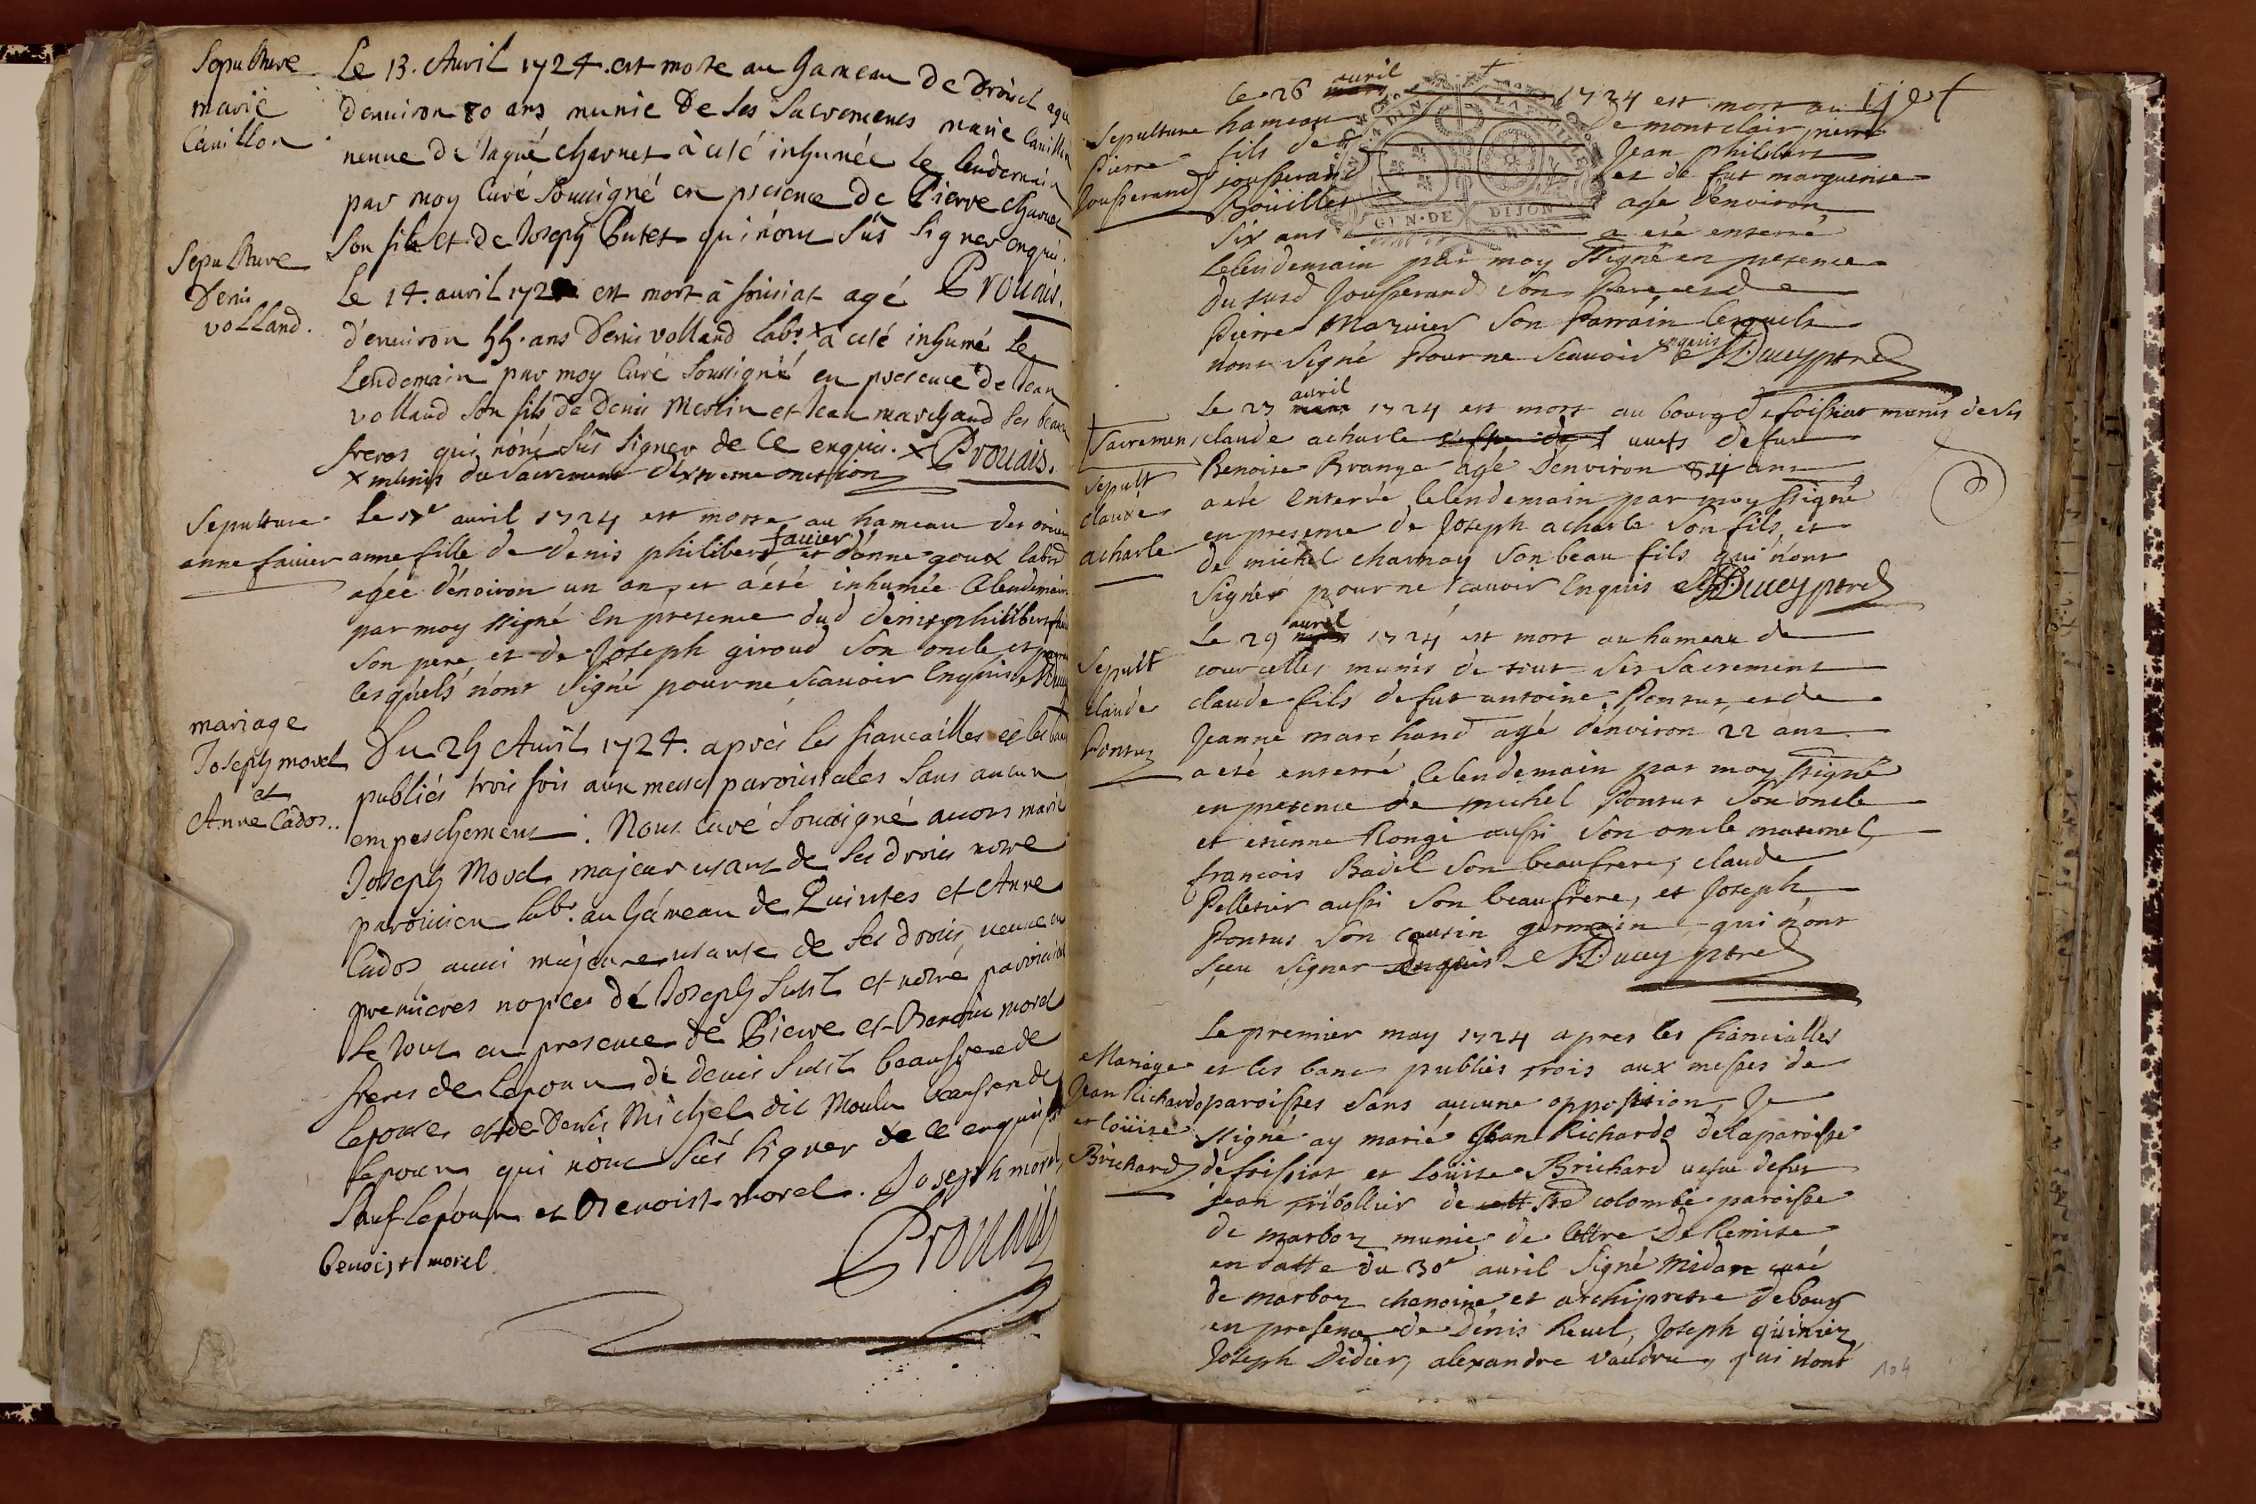 Sepulture
marie
Cavillon
Le 13. Avril 1724. est morte au hameau de
d'environ 80 ans munie de ses Sacremens marie
veuve de Jaque charnet à eté inhumée le lendemain
par moy Curé Soussigné en presence de Pierre
son fils et de Joseph Putet qui n'ont sus signer enquis.
Prouais.
Sepulture
Denis
volland.
Le 14. avril 172 est mort à foisiat agé
d'environ 55. ans Denis volland labr. x a eté inhumé le
Lendemain par moy Curé Soussigné en presence de Jean
volland son fils de Denis Merlin et Jean marchand ses beaux
freres qui n'ont sus signer de ce enquis. x Prouais.
x munis du sacrement d'extreme onction
Sepulture
anne favier
Le avril 1724 est morte au hameau des
favier
anne fille de denis philibert et d'anne goux
agée d'environ un an, et a été inhumée le lendemain
par moy ssigné En presence dud denis philibert
son pere, et de Joseph giroud son oncle et
lesquels n'ont signé pour ne scavoir Enquis
mariage
Joseph morel
et
Anne Cador..
Du 25 Avril 1724. aprés les fiancailles et les
publiés trois fois aux messes paroissiales sans aucun
empeschement. Nous Curé Soussigné avons marié
Joseph Morel majeur usant de ses droits notre
paroissien labr. au hameau de Quintes et Anne
Cador aussi majeure usante de ses droits veuve en
premieres nopces de Joseph Subtil et notre
le tout en presence de Pierre et Benoit morel
freres de l'epoux de denis Subtil beaufrere de
l'epouse et de Denis Michel dit Moulu beaufrere de
l'epoux qui n'ont sus signer de ce enquis
Sauf l'epoux et Benoist morel. Joseph morel
benoist morel
Prouais
avril
le 26 mars 1724 est mort au
Sepulture
Pierre
Jousserand
hameau de montclair pierre
fils de Jean philibert
jousserand et de fut marguerite
Boüillet agé d'environ
six ans a eté enterré
Le lendemain par moy ssigné en presence
du susd Jousserand son pere, et de
Pierre Mazuier son Parrain lesquels
n'ont signé Pour ne scavoir enquis Ducry ptre
avril
Le 27 mars 1724 est mort au bourg de foissiat munis de ses
Sacremens
Sepult
claude
acharle
claude acharle veuf de fut
Benoite Brange agé d'environ 84 ans
a eté Enterré le lendemain par moy ssigné
en presence de Joseph acharle son fils, et
de michel charnay son beau fils qui n'ont
signés pour ne scavoir Enquis Ducry ptre
avril
Le 29 mars 1724 est mort au hameau de
Sepult
Claude
Pontus
courcelles munis de tout ses sacremens
claude fils de fut antoine Pontus, et de
Jeanne marchand agé d'environ 22 ans
a eté enterré le lendemain par moy ssigné
en presence de michel Pontus son oncle
et etienne Rongé aussi son oncle maternel,
francois Badel son beaufrere, claude
Pelletier aussi son beaufrere, et Joseph
Pontus son cousin germain qui n'ont
sceu signer enquis Ducry ptre
Le premier may 1724 apres les fiancialles
Mariage
Jean Richardo
et loüise
Brichard
et les banc publiés trois aux messes de
paroisses sans aucune opposition, Je
ssigné ay marié Jean Richardo de la paroisse
de foissiat et loüise Brichard vefve de fut
jean tribollier de Ste colombe paroisse
de marboz munie de lettre De Remise
en datte du 30e avril signé Midan curé
de marboz chanoine et archipretre de bourg
en presence de Dénis Revel, Joseph quinier,
Joseph Didier, alexandre vaudru, qui n'ont
104